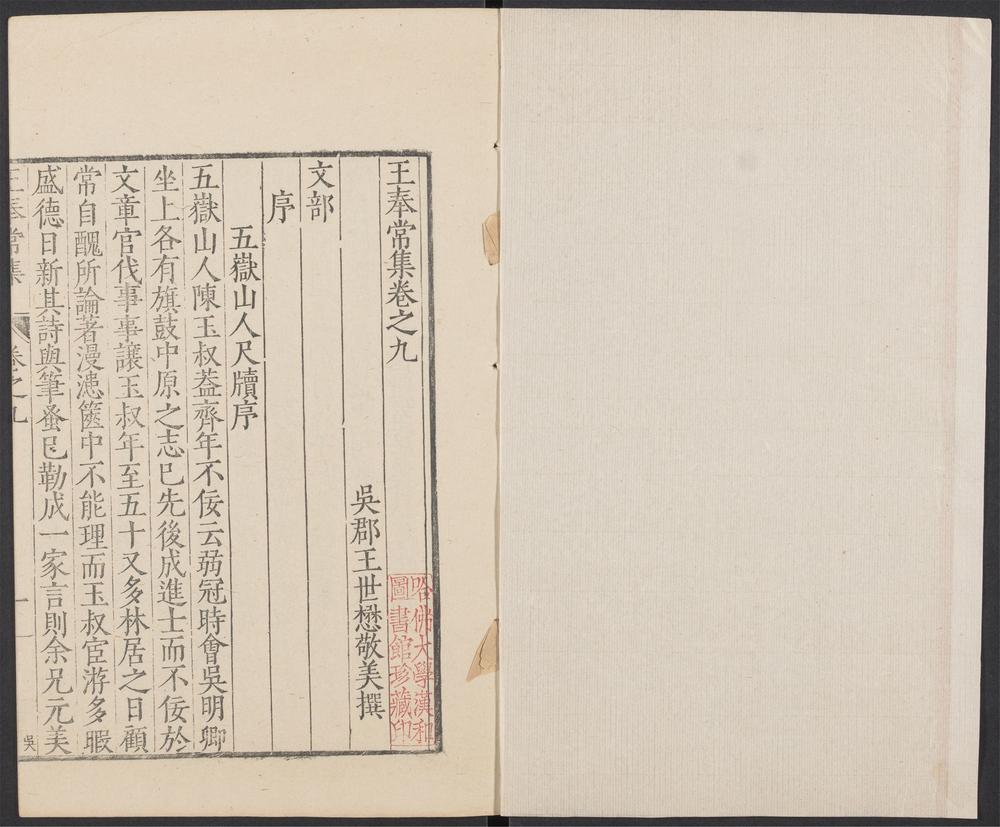 王奉常集卷之九
吳郡王世懋敬美撰
文部
序
五嶽山人尺牘序
五嶽山人陳玉叔葢齊年不佞云弱冠時會吳明卿
坐上各有旗鼓中原之志已先後成進士而不佞於
文章官伐事事讓玉叔年至五十又多林居之日顧
常自醜所論著漫漶篋中不能理而玉叔宦游多暇
盛德日新其詩與筆蚤已勒成一家言則余兄元美
王奉常集
卷之九
一
吳
哈佛大學漢和
圖書館珍藏印